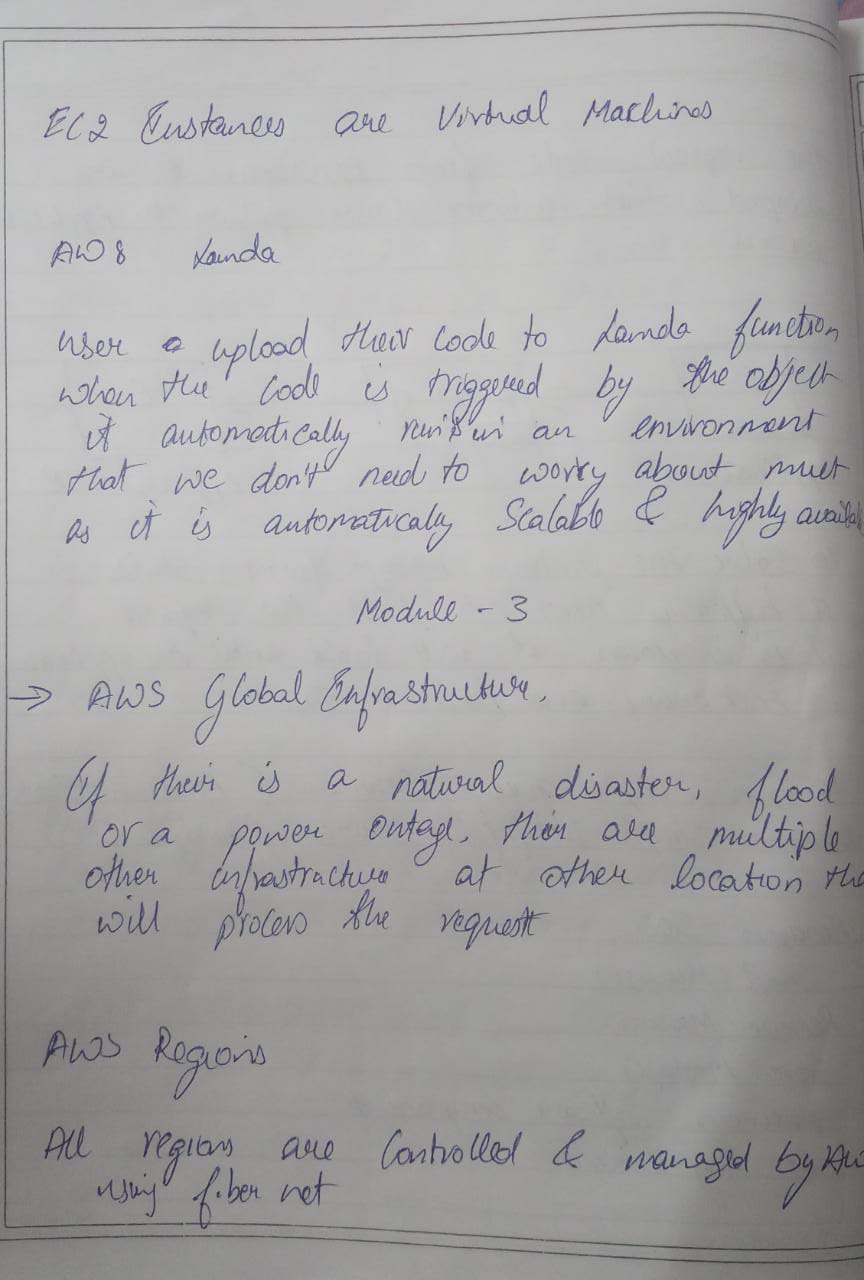 EC2 Instances are Virtual Machines
AWS Lamda
user upload their code to Lamda function
when the code is triggered by the object
it automatically runs in an environment
that we don't need to worry about much
as it is automatically Scalable & highly availab
Module - 3
→ AWS Global Infrastructure.
If their is a natural disaster, flood
or a power outage, their are multiple
other infrastructure at other location tha
will process the request
AWS Regions
All regions are Controlled & managed by AW
using fiber net